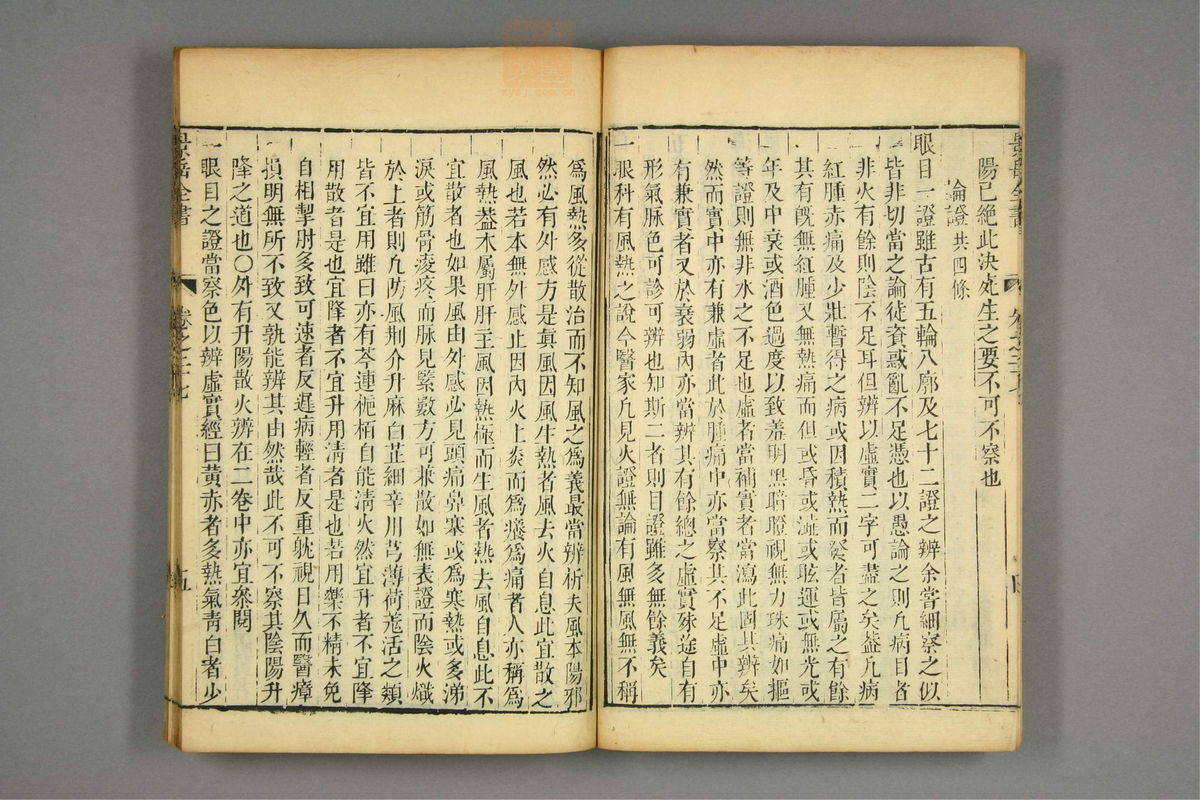 陽已絕此決死生之要不可不察也
論證共四條
眼目一證雖古有五輪八廓及七十二證之辨余嘗細察之似
皆非切當之論徒資惑亂不足憑也以愚論之則凡病目者
非火有餘則陰不足耳但辨以虛實二字可盡之矣葢凡病
紅腫赤痛及少壯暫得之病或因積熱而發者皆屬之有餘
其有既無紅腫又無熱痛而但或昏或澁或眩運或無光或
年及中衰或酒色過度以致羞明黑暗瞪視無力珠痛如摳
等證則無非水之不足也虛者當補實者當瀉此固其辨矣
然而實中亦有兼虛者此於腫痛中亦當察其不足虛中亦
有兼實者又於衰弱內亦當辨其有餘總之虛實殊途自有
形氣脈色可診可辨也知斯二者則目證雖多無餘義矣
一眼科有風熱之說今醫家凡見火證無論有風無風無不稱
為風熱多從散治而不知風之為義最當辨析夫風本陽邪
然必有外感方是眞風因風生熱者風去火自息此宜散之
風也若本無外感止因內火上炎而為癢為痛者人亦稱為
風熱葢木屬肝肝主風因熱極而生風者熱去風自息此不
宜散者也如果風由外感必見頭痛鼻塞或為寒熱或多涕
淚或筋骨痠疼而脈見緊數方可兼散如無表證而陰火熾
於上者則凡防風荆介升麻白芷細辛川芎薄荷羗活之類
皆不宜用雖曰亦有芩連梔栢自能清火然宜升者不宜降
用散者是也宜降者不宜升用清者是也若用藥不精未免
自相掣肘多致可速者反遲病輕者反重躭視日久而醫瘴
損明無所不致又孰能辨其由然哉此不可不察其陰陽升
降之道也〇外有升陽散火辨在二卷中亦宜參閱
一眼目之證當察色以辨虛實經曰黃赤者多熱氣靑白者少
景岳全書
卷之二十七
五